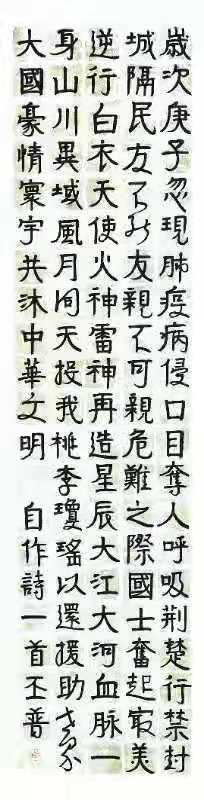 歲次庚子忽現肺疫病侵口目奪人呼吸荆楚行禁封
城隔民友不能友親不可親危難之際國士奮起冣美
逆行白衣天使火神雷神再造星辰大江大河血脉一
身山川異域風月同天投我桃李瓊瑤以還援助
大國豪情寰宇共沐中華文明 自作詩一首丕普